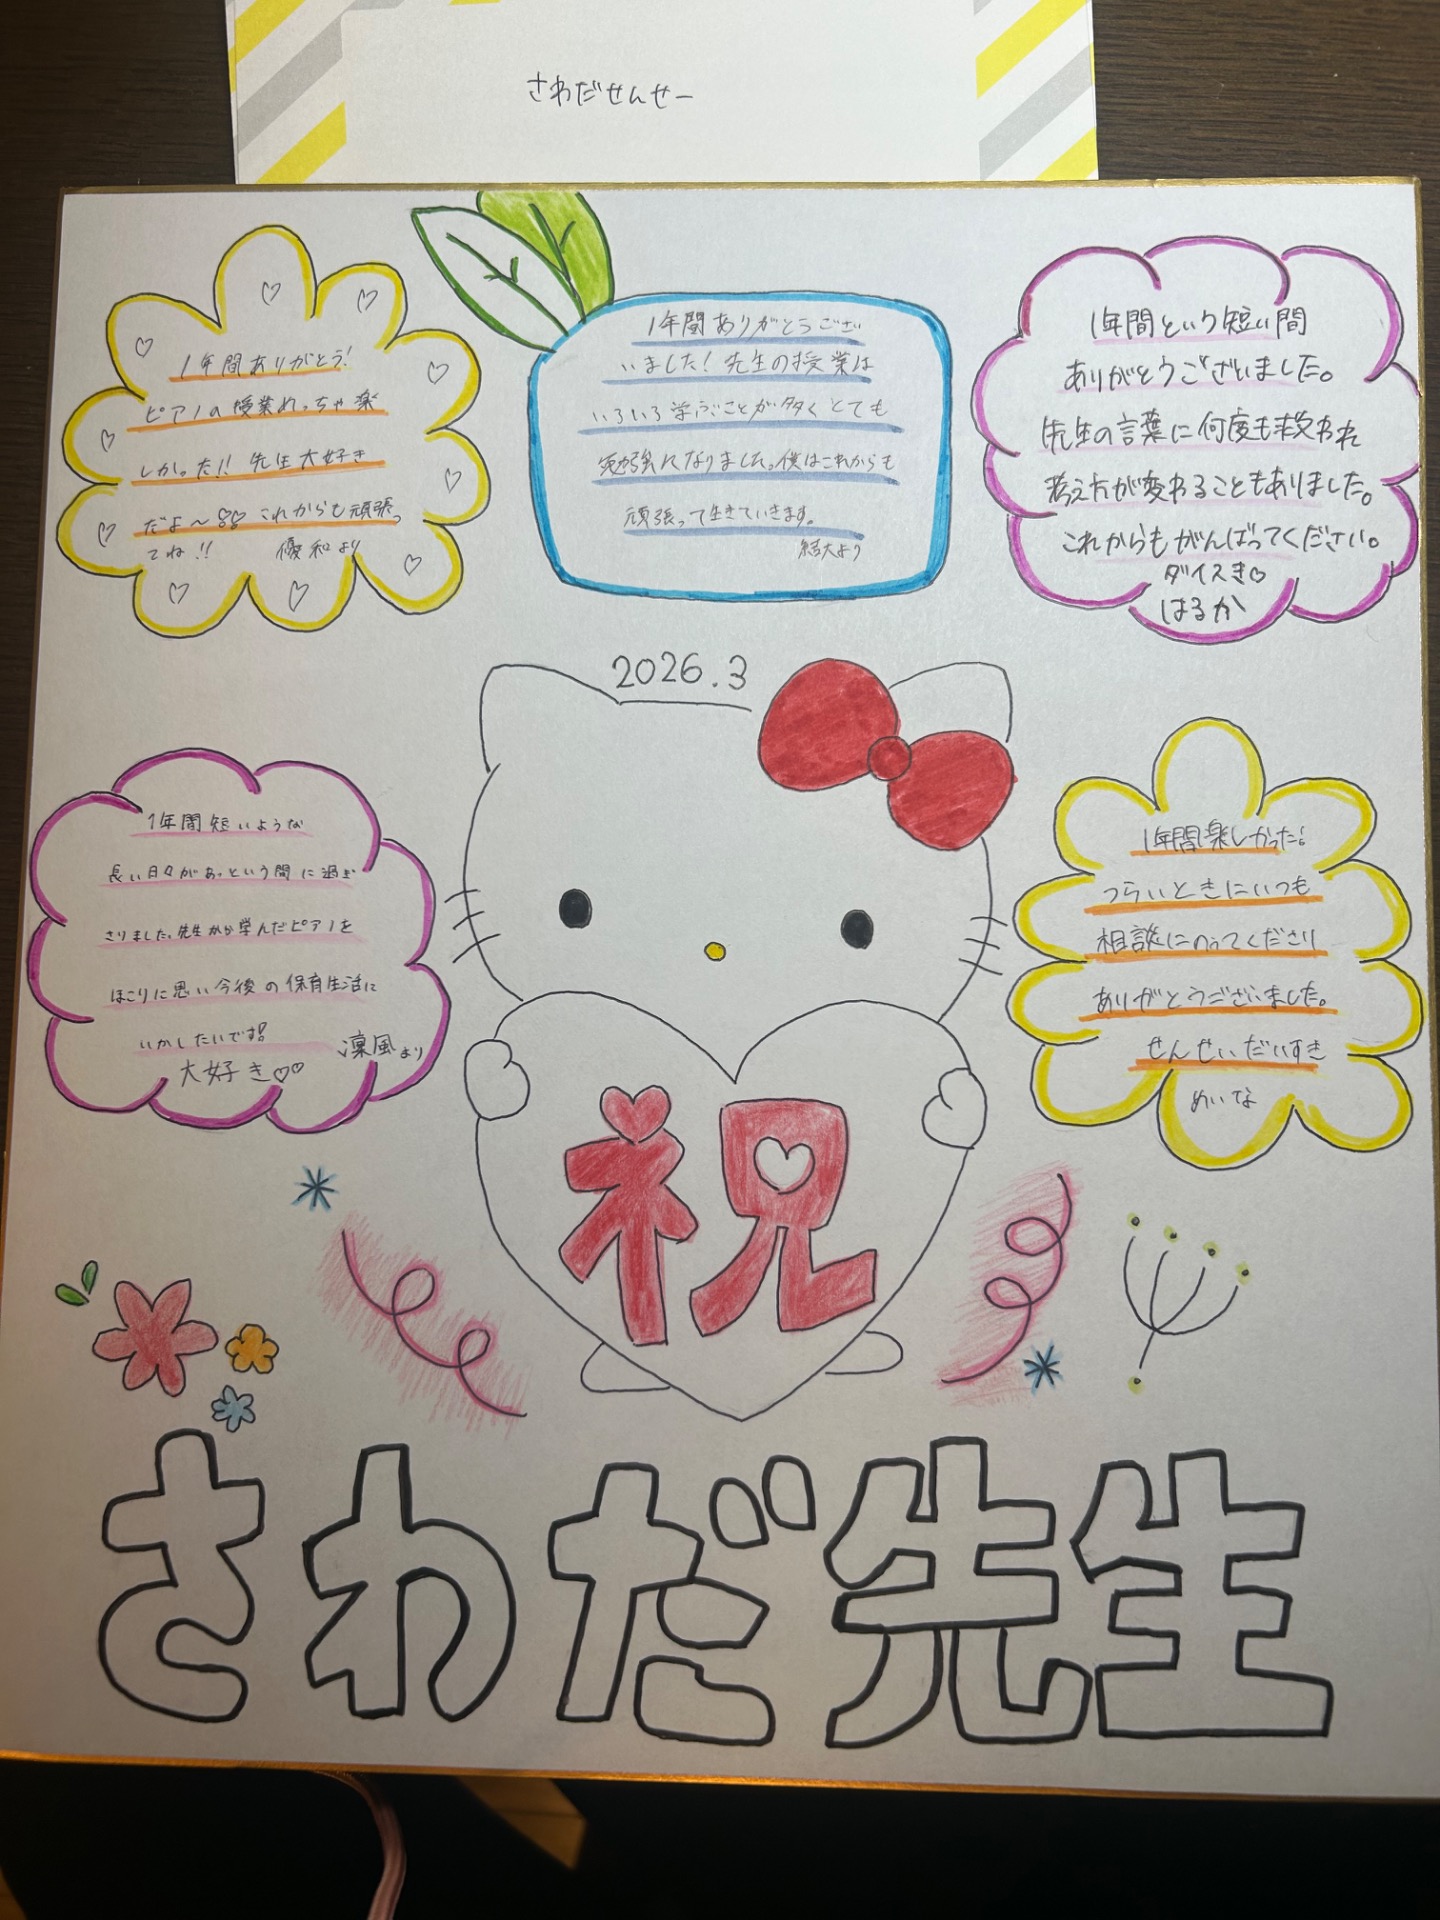 さわだせんせー
1年間ありがとう!
ピアノの授業めっちゃ楽
しかった!! 先生大好き
だよ〜♡♡ これからも頑張っ
てね!! 優和より
1年間ありがとうござい
いました! 先生の授業は
いろいろ学ぶことが多くとても
勉強になりました。僕はこれからも
頑張って生きていきます。
結大より
1年間という短い間
ありがとうございました。
先生の言葉に何度も救われ
考え方が変わることもありました。
これからもがんばってください。
ダイスき♡
はるか
2026.3
1年間短いような
長い日々があっという間に過ぎ
さりました。先生から学んだピアノを
ほこりに思い今後の保育生活に
いかしたいです!
凜風より
大好き♡♡
1年間楽しかった!
つらいときにいつも
相談にのってくださり
ありがとうございました。
せんせいだいすき
めいな
祝
さわだ先生